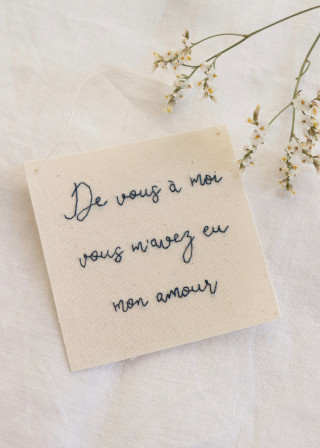 De vous à moi
vous m'avez eu
mon amour